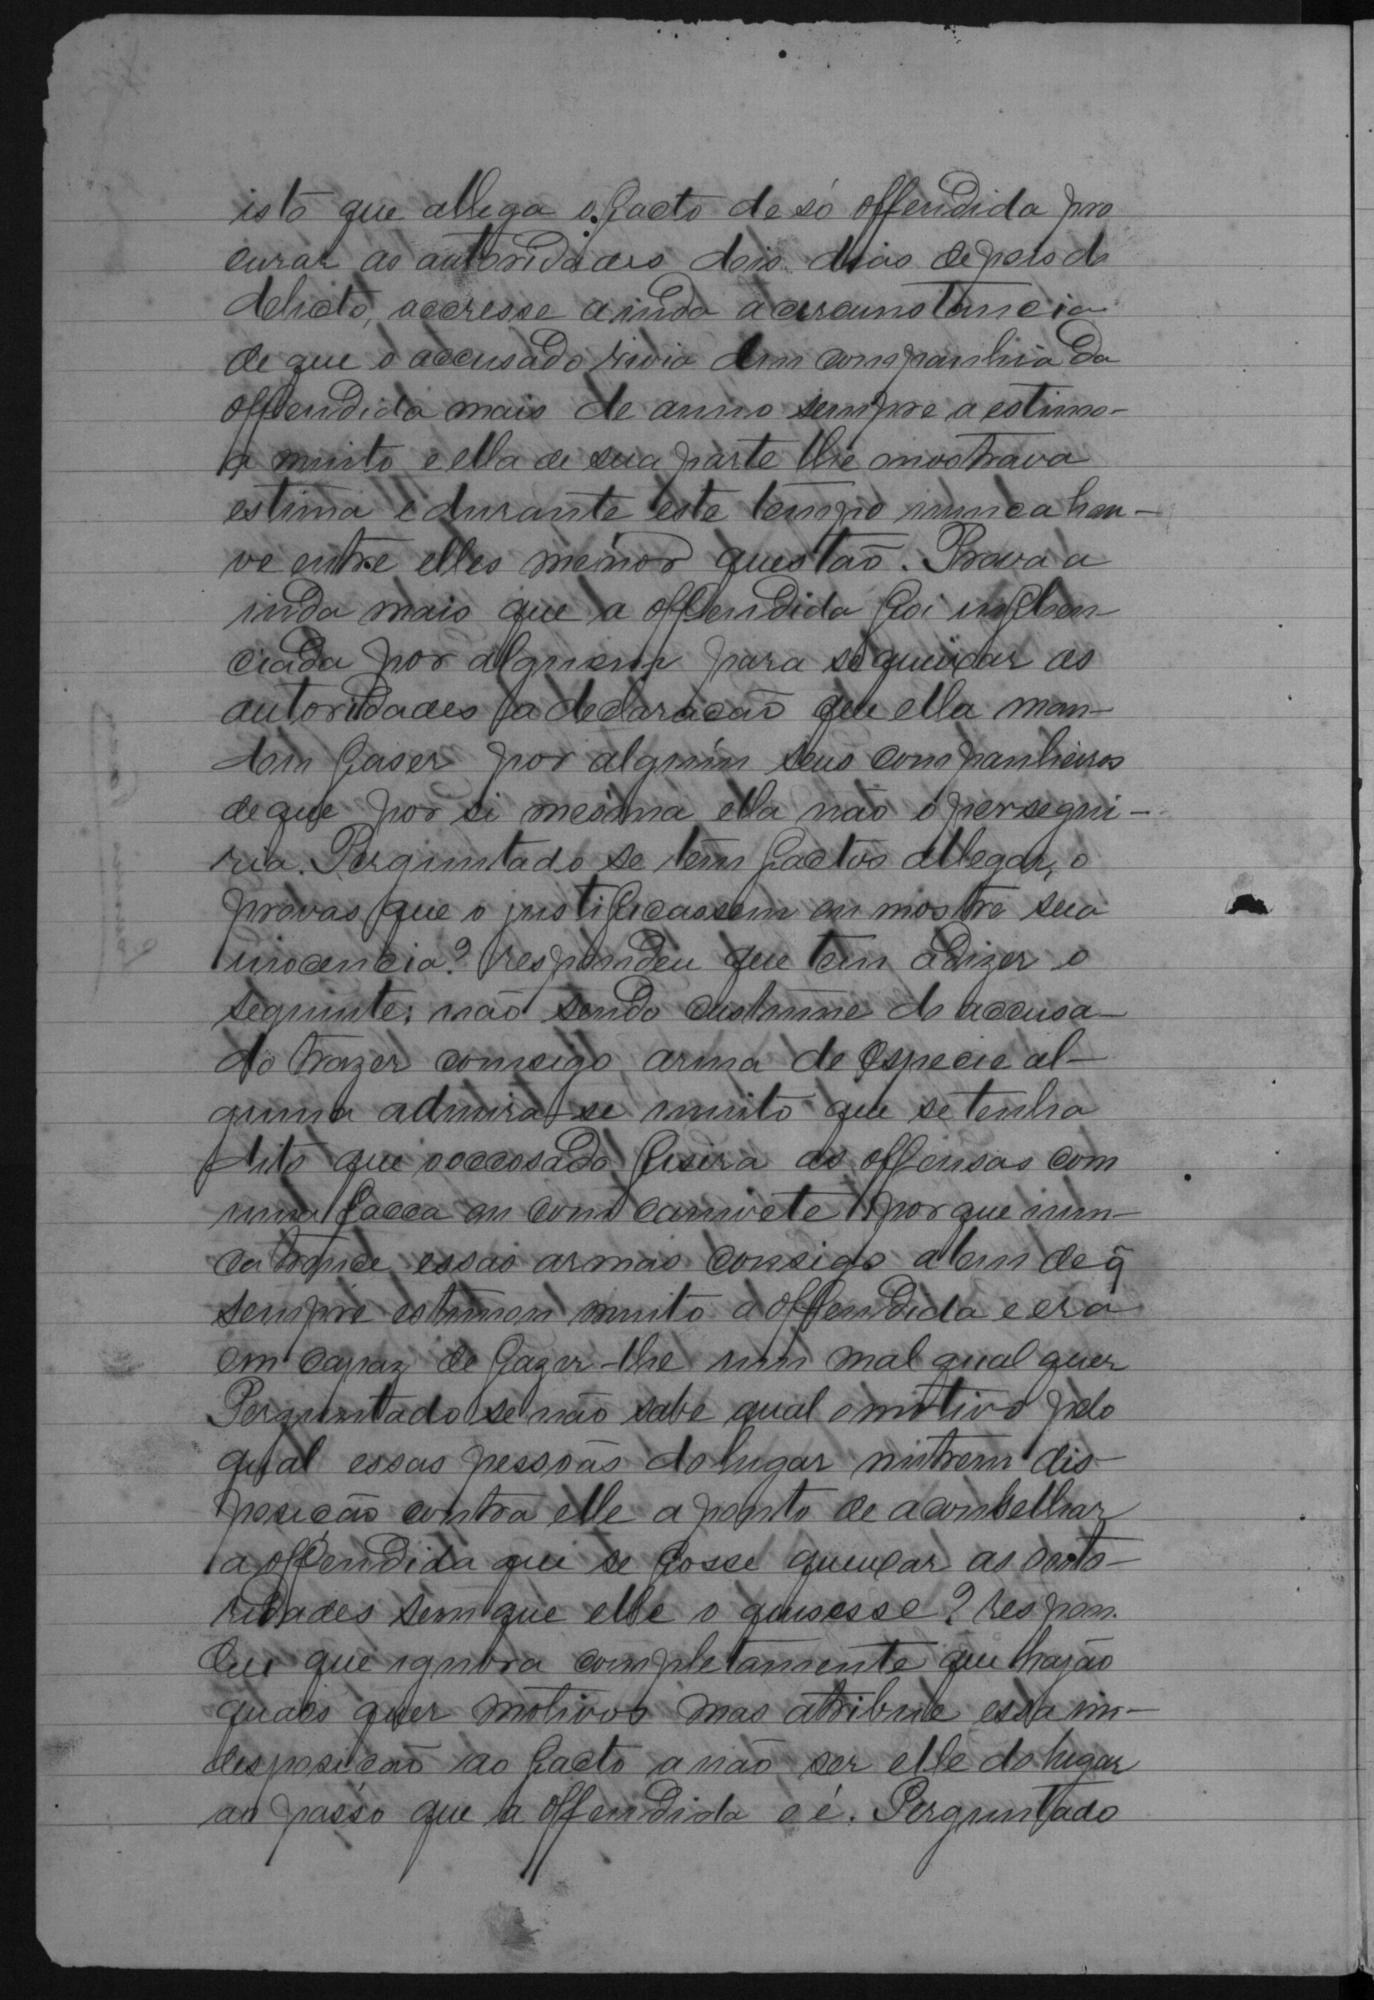 isto que allega o facto de só offendida pro
curar as autoridades dois dias depois do
delicto, accresse ainda a circunstancia
de que o accusado vivia em companhia da
offendida mais de anno sempre a estimo-
a muito e ella de sua parte lhe mostrava
estima e durante este tempo nunca hou-
ve entre elles menor questão. Prova a
inda mais que a offendida foi influen
ciada por alguem para se queixar as
autoridades a declaração que ella man-
dou faser por alguns seus companheiros
de que por si mesma ella não o persegui-
ria. Perguntado se tem factos allegar, o
provas que o justificassem ou mostre sua
inocencia? respondeu que tem a dizer o
seguinte: não sendo custume do accusa-
do trazer comsigo arma de especie al-
guma admira-se muito que se tenha
dito que o accosado fisera as offensas com
uma facca ou com canivete porque nun-
ca trouce essas armas consigo alem de q̃
sempre estimou muito a offendida e era
em capaz de fazer-lhe um mal qual quer
Perguntado se não sabe qual o motivo pelo
qual essas pessoas do lugar nutrem dis-
posição contra elle a ponto de aconselhar
a offendida que se fosse queixar as auto-
ridades sem que elle o quisesse? respon.
deu que ignora completamente que hajão
quaes quer motivos mas atribue essa in-
desposicão ao facto a não ser elle do lugar
ao passo que a offendida o é. Perguntado